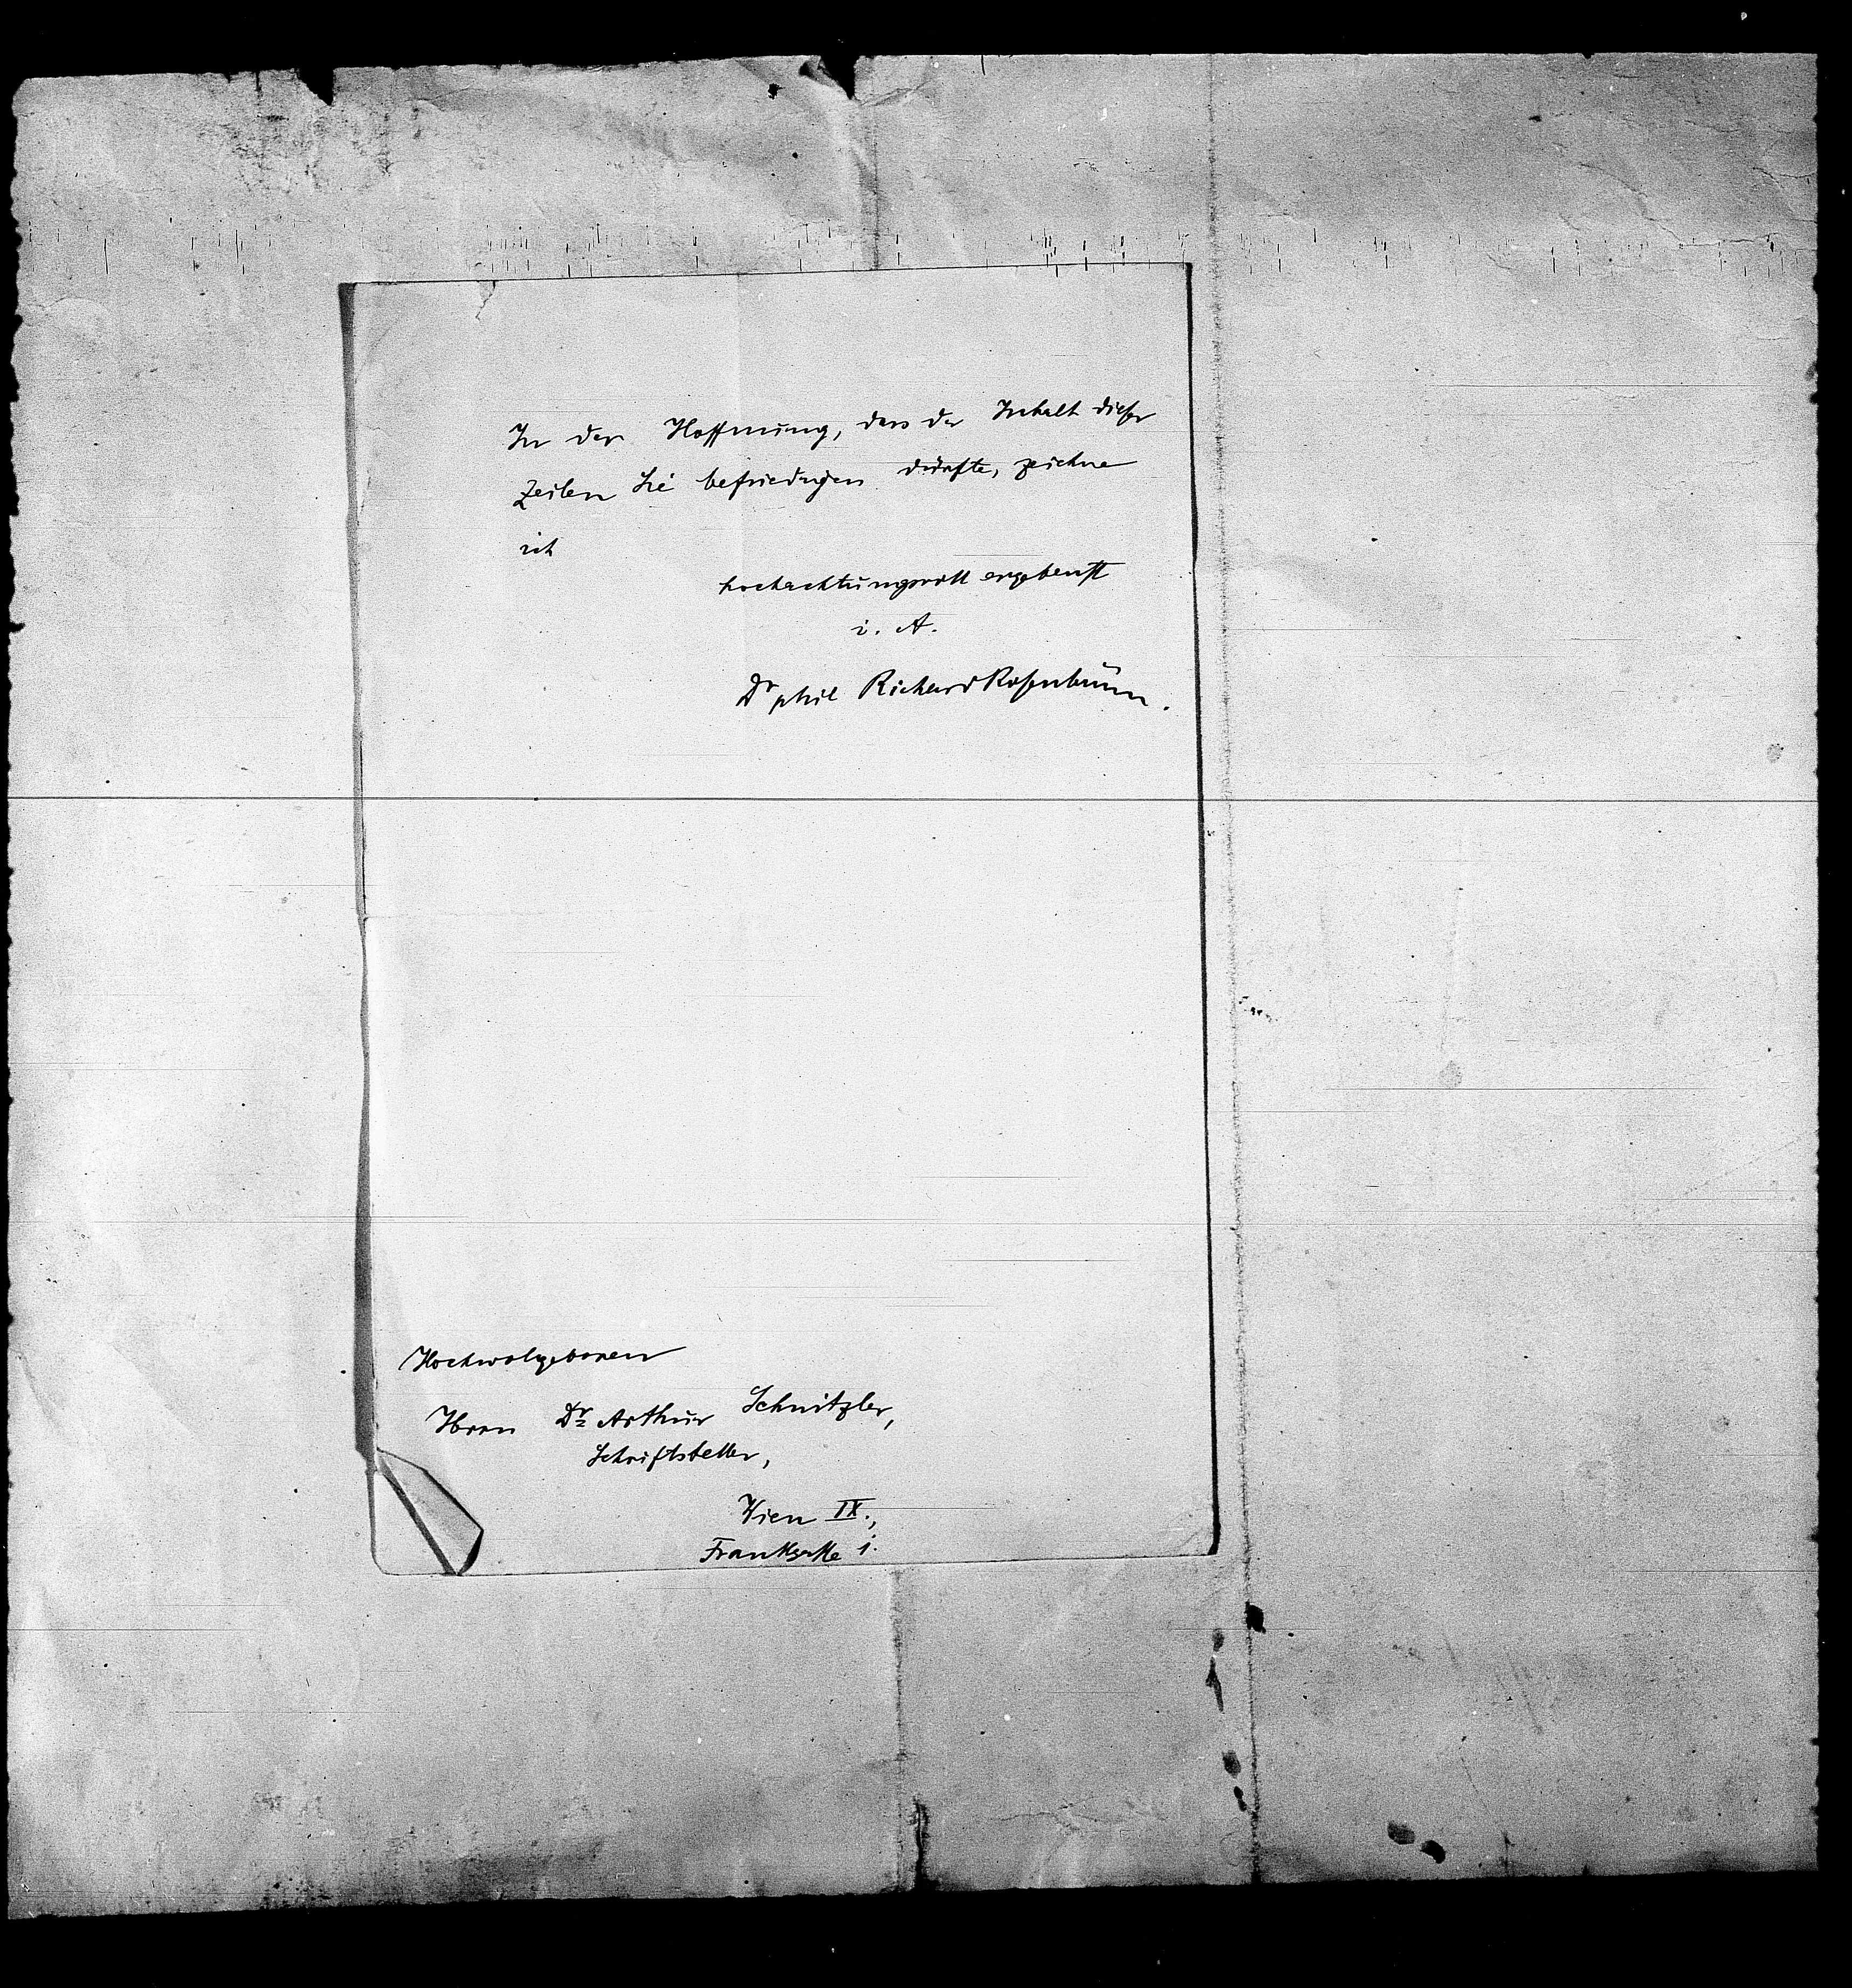 In der Hoffnung, dass der Inhalt dieser
Zeilen Sie befriedigen dürfte, zeichne
ich
hochachtungsvoll ergebenst
i. A.
Dr phil Richard Rosenbaum.
Hochwolgeboren
Herrn Dr Arthur Schnitzler,
Schriftsteller,
Wien IX.,
Frankgasse 1.